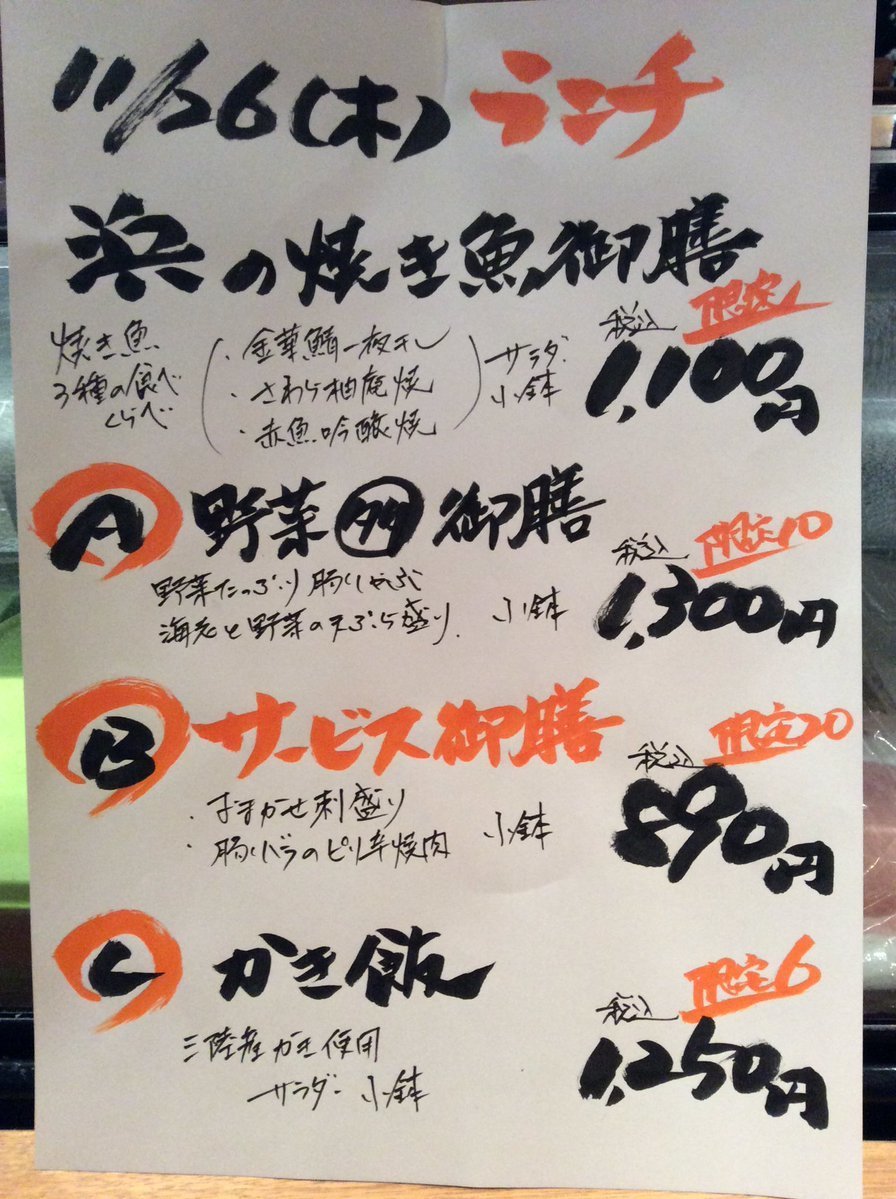 11/26(木) ランチ
浜の焼き魚御膳
焼き魚
3種の食べ
くらべ
・金華鯖一夜干し
・さわら柚庵焼
・赤魚吟醸焼
サラダ
小鉢
税込 限定
1,100円
A 野菜多御膳
野菜たっぷり豚しゃぶ
海老と野菜の天ぷら盛り 小鉢
税込 限定10
1,300円
B サービス御膳
・おまかせ刺盛り
・豚バラのピリ辛焼肉 小鉢
税込 限定20
890円
C かき飯
三陸産かき使用
サラダ 小鉢
税込 限定6
1,250円